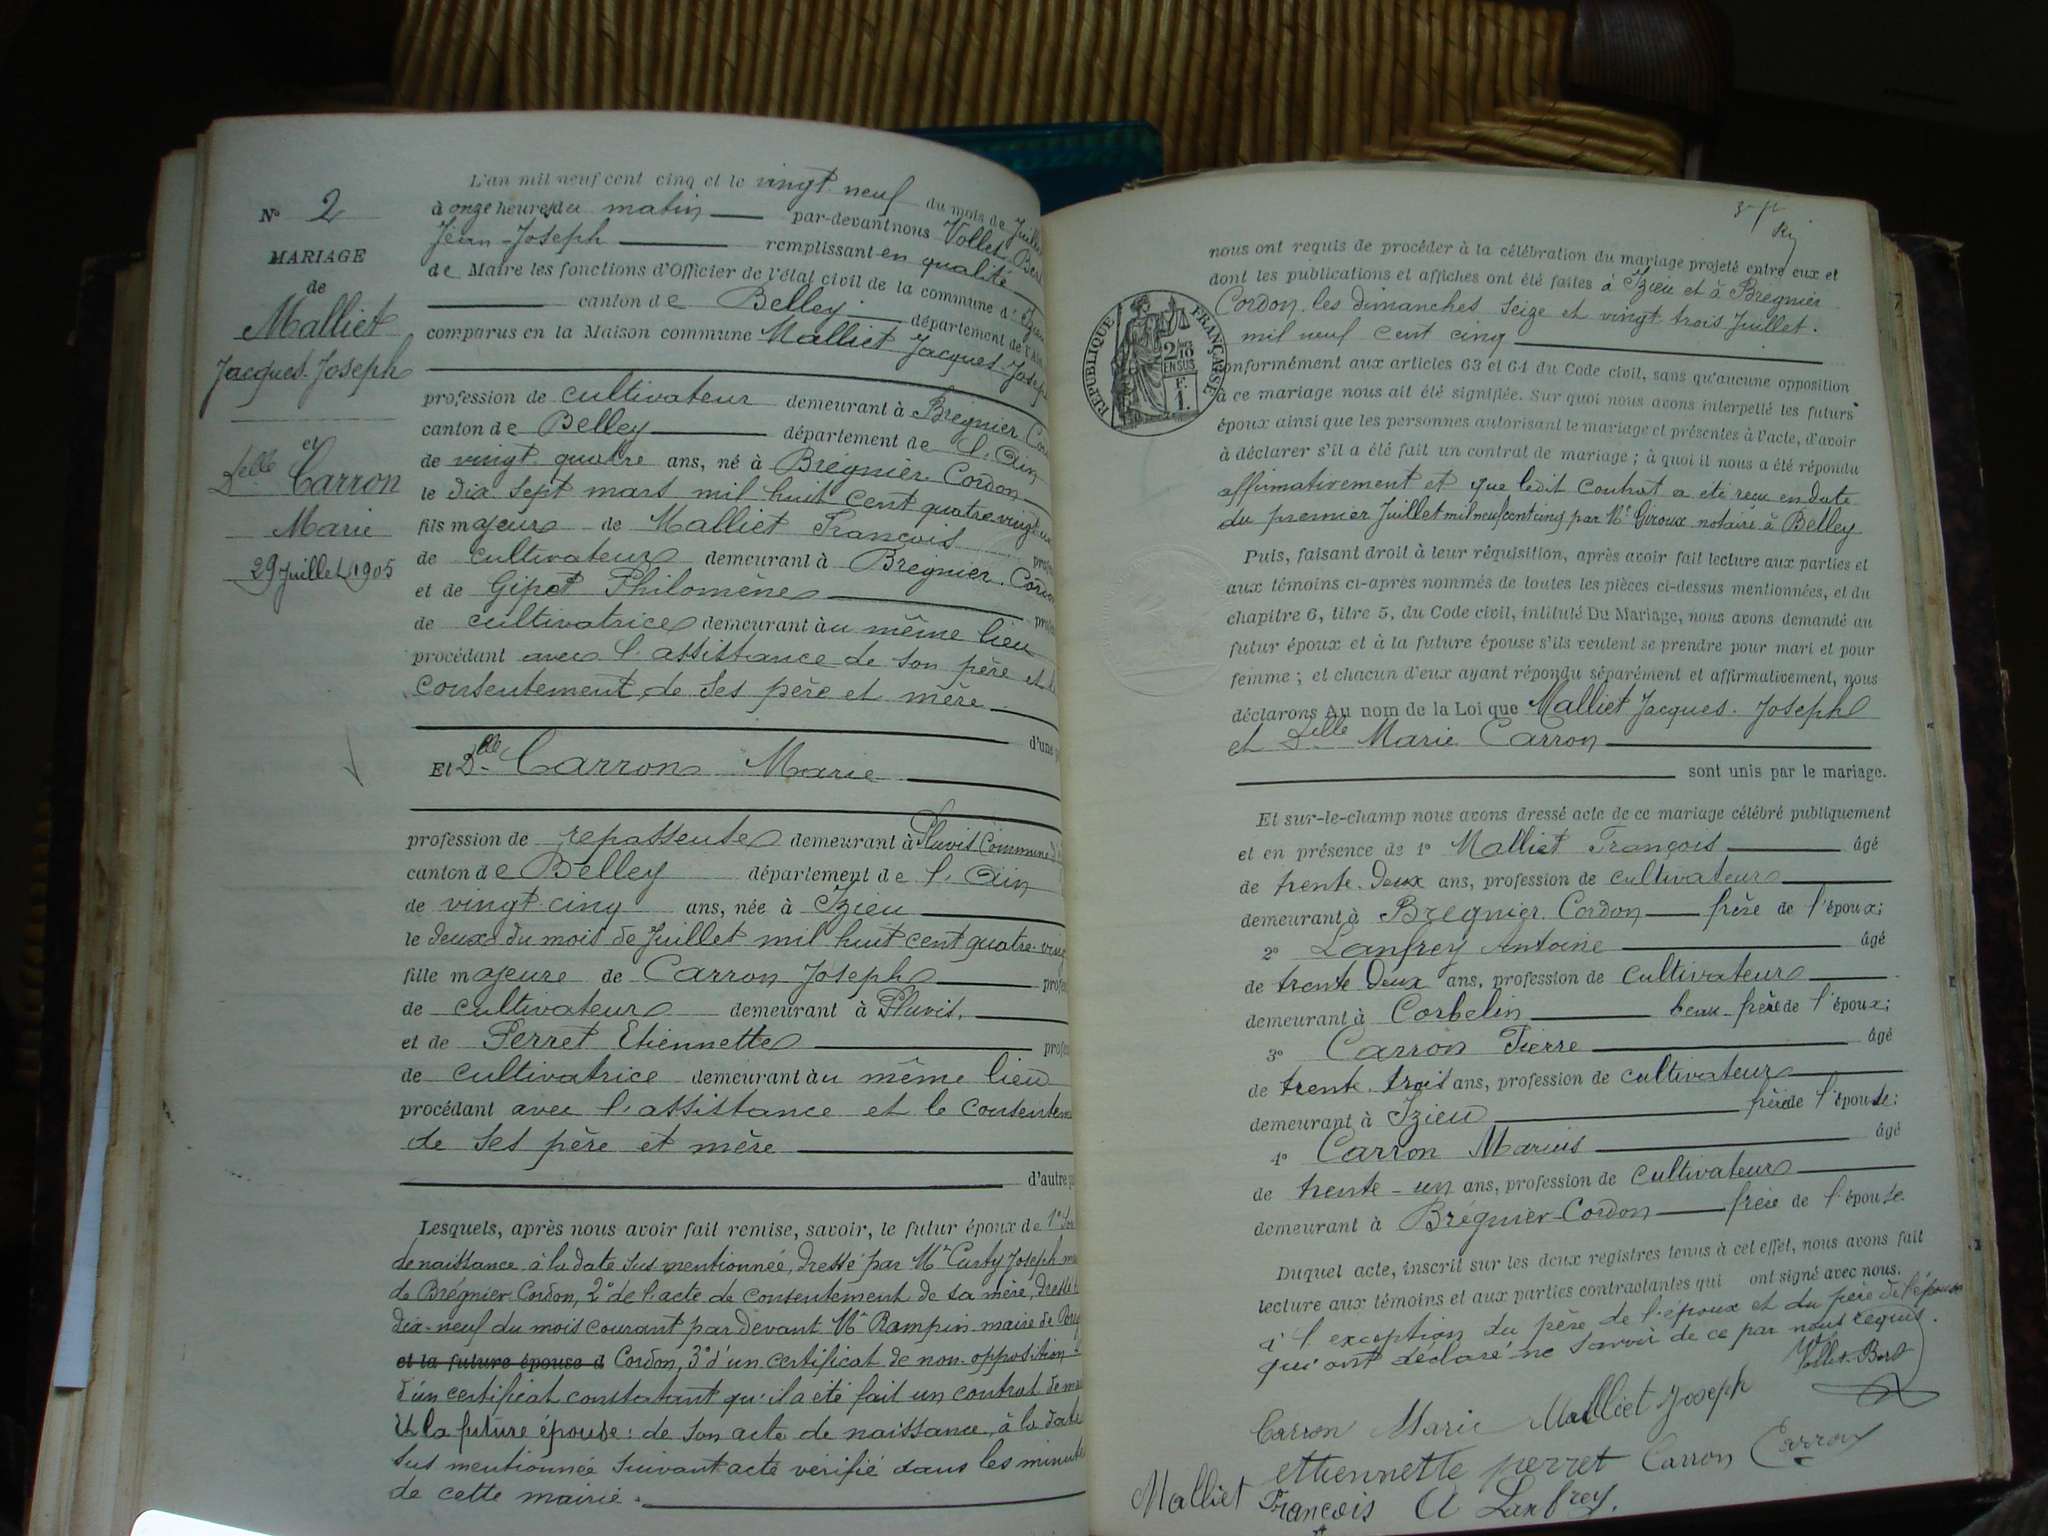 N° 2
MARIAGE
de
Malliet
Jacques-Joseph
et
Delle Carron
Marie
29 Juillet 1905
L'an mil neuf cent cinq et le vingt neuf du mois de Juillet
à onze heures du matin par-devant nous Vollet Bert
Jean-Joseph remplissant en qualité
de Maire les fonctions d'Officier de l'état civil de la commune d'Izieu
canton de Belley département de l'Ain
comparus en la Maison commune Malliet Jacques-Joseph
profession de cultivateur demeurant à Brégnier Cor
canton de Belley département de l'Ain
de vingt quatre ans, né à Brégnier-Cordon
le dix sept mars mil huit cent quatre vingt
fils majeur de Malliet François profes
de cultivateur demeurant à Brégnier-Cordon
et de Gipet Philomène profes
de cultivatrice demeurant au même lieu
procédant avec l'assistance de son père et le
consentement de ses père et mère
d'une p
Et Delle Carron Marie
profession de repasseuse demeurant à Pluvis Commune d'I
canton de Belley département de l'Ain
de vingt cinq ans, née à Izieu
le deux du mois de Juillet mil huit cent quatre-ving
fille majeure de Carron Joseph profes
de cultivateur demeurant à Pluvis,
et de Perret Etiennette profes
de cultivatrice demeurant au même lieu
procédant avec l'assistance et le consentem
de ses père et mère
d'autre p
Lesquels, après nous avoir fait remise, savoir, le futur époux de 1° Son
de naissance à la date sus mentionnée, dressé par Mr Curty Joseph m
de Brégnier-Cordon, 2° de l'acte de consentement de sa mère, dressé
dix-neuf du mois courant par devant Mr Rampin maire de Brég
et la future épouse d Cordon, 3° d'un certificat de non-opposition
d'un certificat constatant qu'il a été fait un contrat de ma
Et la future épouse : de son acte de naissance, à la date
sus mentionnée suivant acte vérifié dans les minute
de cette mairie.
nous ont requis de procéder à la célébration du mariage projeté entre eux et
dont les publications et affiches ont été faites à Izieu et à Brégnier
Cordon les dimanches seize et vingt trois Juillet.
mil neuf cent cinq
RÉPUBLIQUE FRANÇAISE
2/10 EN SUS
F. 1.
conformément aux articles 63 et 64 du Code civil, sans qu'aucune opposition
à ce mariage nous ait été signifiée. Sur quoi nous avons interpellé les futurs
époux ainsi que les personnes autorisant le mariage et présentes à l'acte, d'avoir
à déclarer s'il a été fait un contrat de mariage ; à quoi il nous a été répondu
affirmativement et que ledit contrat a été reçu en date
du premier Juillet mil neuf cent cinq par Me Giroux notaire à Belley
Puis, faisant droit à leur réquisition, après avoir fait lecture aux parties et
aux témoins ci-après nommés de toutes les pièces ci-dessus mentionnées, et du
chapitre 6, titre 5, du Code civil, intitulé Du Mariage, nous avons demandé au
futur époux et à la future épouse s'ils veulent se prendre pour mari et pour
femme ; et chacun d'eux ayant répondu séparément et affirmativement, nous
déclarons Au nom de la Loi que Malliet Jacques-Joseph
et Delle Marie Carron
sont unis par le mariage.
Et sur-le-champ nous avons dressé acte de ce mariage célébré publiquement
et en présence de 1° Malliet François âgé
de trente-deux ans, profession de cultivateur
demeurant à Brégnier-Cordon frère de l'époux;
2° Lanfrey Antoine âgé
de trente deux ans, profession de cultivateur
demeurant à Corbelin beau-frère de l'époux;
3° Carron Pierre âgé
de trente-trois ans, profession de cultivateur
demeurant à Izieu frère de l'épouse;
4° Carron Marius âgé
de trente-un ans, profession de cultivateur
demeurant à Brégnier-Cordon frère de l'épouse.
Duquel acte, inscrit sur les deux registres tenus à cet effet, nous avons fait
lecture aux témoins et aux parties contractantes qui ont signé avec nous.
à l'exception du père de l'époux et du père de l'épouse
qui ont déclaré ne savoir de ce par nous requis.
Vollet-Bert
Carron Marie Malliet Joseph
ettiennette perret Carron Carron
Malliet François A Lanfrey.